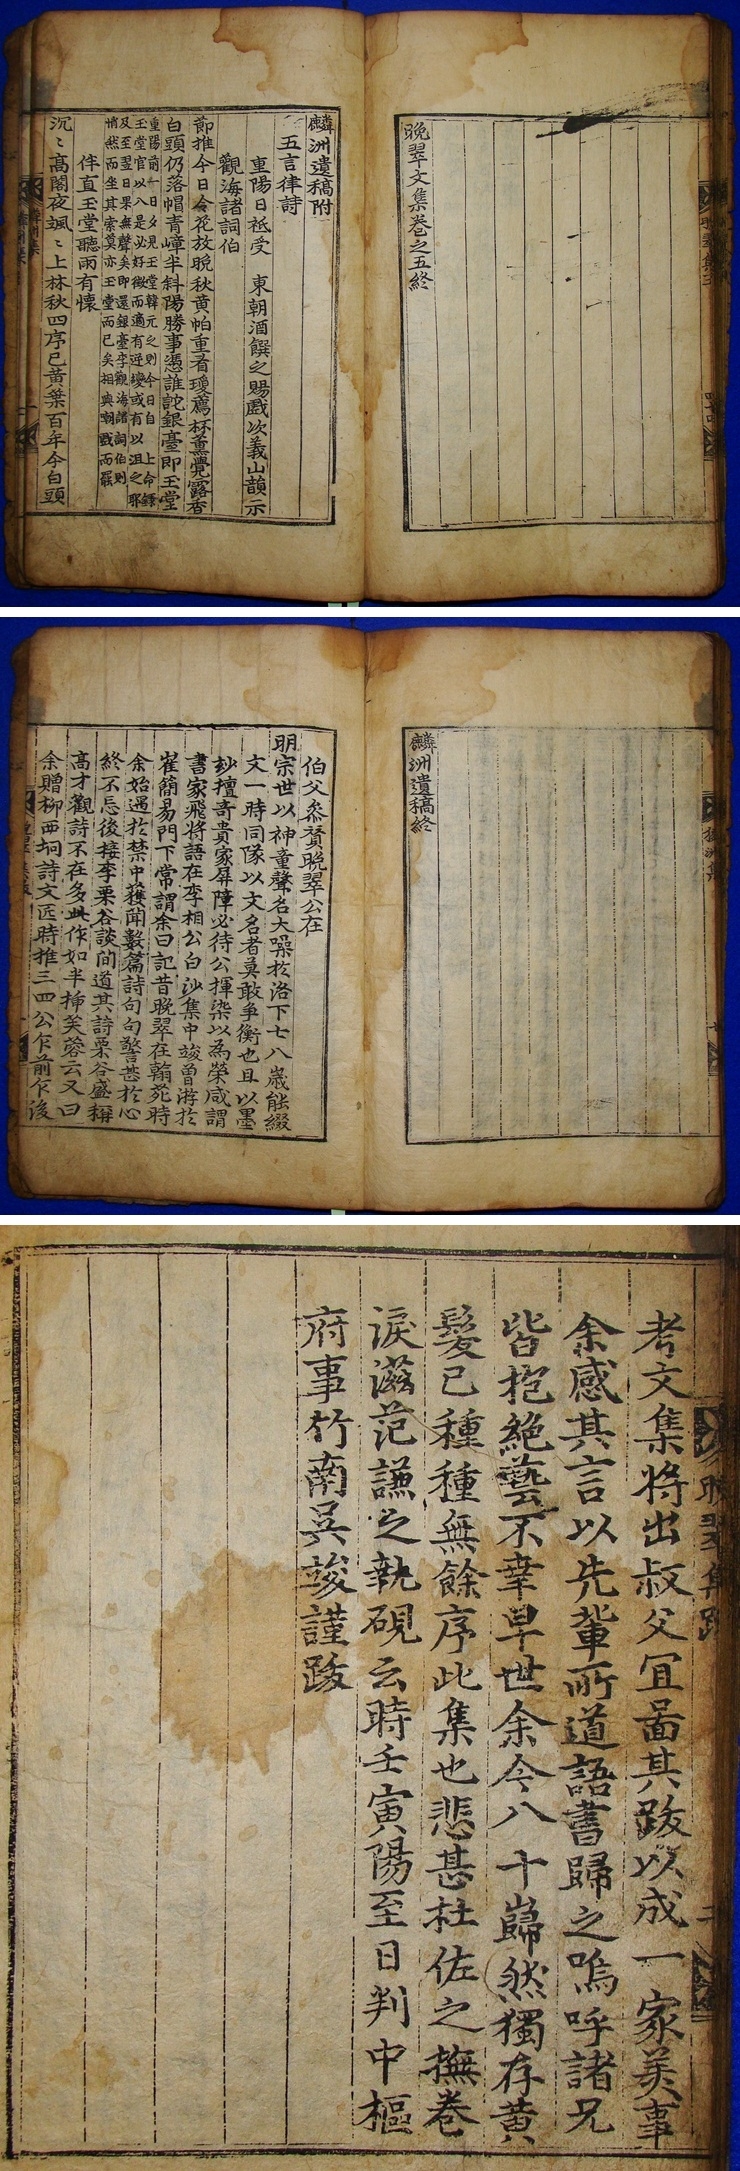 晩翠文集卷之五終
麟洲遺稿附
五言律詩
重陽日祗受　東朝酒饌之賜戲次義山韻示
觀海諸詞伯
節推今日令花放晩秋黄帕重看瓊薦杯薰覺露香
白頭仍落帽靑嶂半斜陽勝事憑誰說銀臺即玉堂
重陽前一日夕見玉堂韓元之則今日自　上命饋
玉堂官以八是必好徵而適有近㙜或有以沮之耶
及至翌日果無聲矣即還銀臺字觀海諸詞伯則
悄然而坐其索莫亦玉堂而已矣相與嘲戲而罷
伴直玉堂聽雨有懷
沉〻高閣夜颯〻上林秋四序已黃葉百年今白頭
麟洲遺稿終
伯父叅贊晩翠公在
明宗世以神童聲名大噪於洛下七八歲能綴
文一時同隊以文名者莫敢爭衡也且以墨
玅擅奇貴家屏障必待公揮染以爲榮咸謂
書家飛將語在李相公白沙集中竣曾游於
崔簡易門下常謂余曰記昔晩翠在翰苑時
余始遇於禁中獲聞數篇詩句句警甚於心
終不忘後接李栗谷談間道其詩栗谷盛稱
高才觀詩不在多此作如半揷芙蓉云又曰
余贈柳西坰詩文匠時推三四公乍前乍後
考文集將出叔父冝畱其跋以成一家美事
余感其言以先軰所道語書歸之嗚呼諸兄
皆抱絶藝不幸早世余今八十巋然獨存黄
髮已種種無餘序此集也悲甚杜佐之撫卷
淚滋范謙之執硯云時壬寅陽至日判中樞
府事竹南吳竣謹跋
晩翠集跋
二